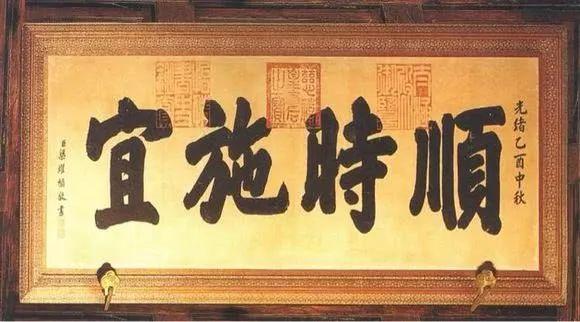 光緒乙酉中秋
順時施宜
臣梁耀樞敬書